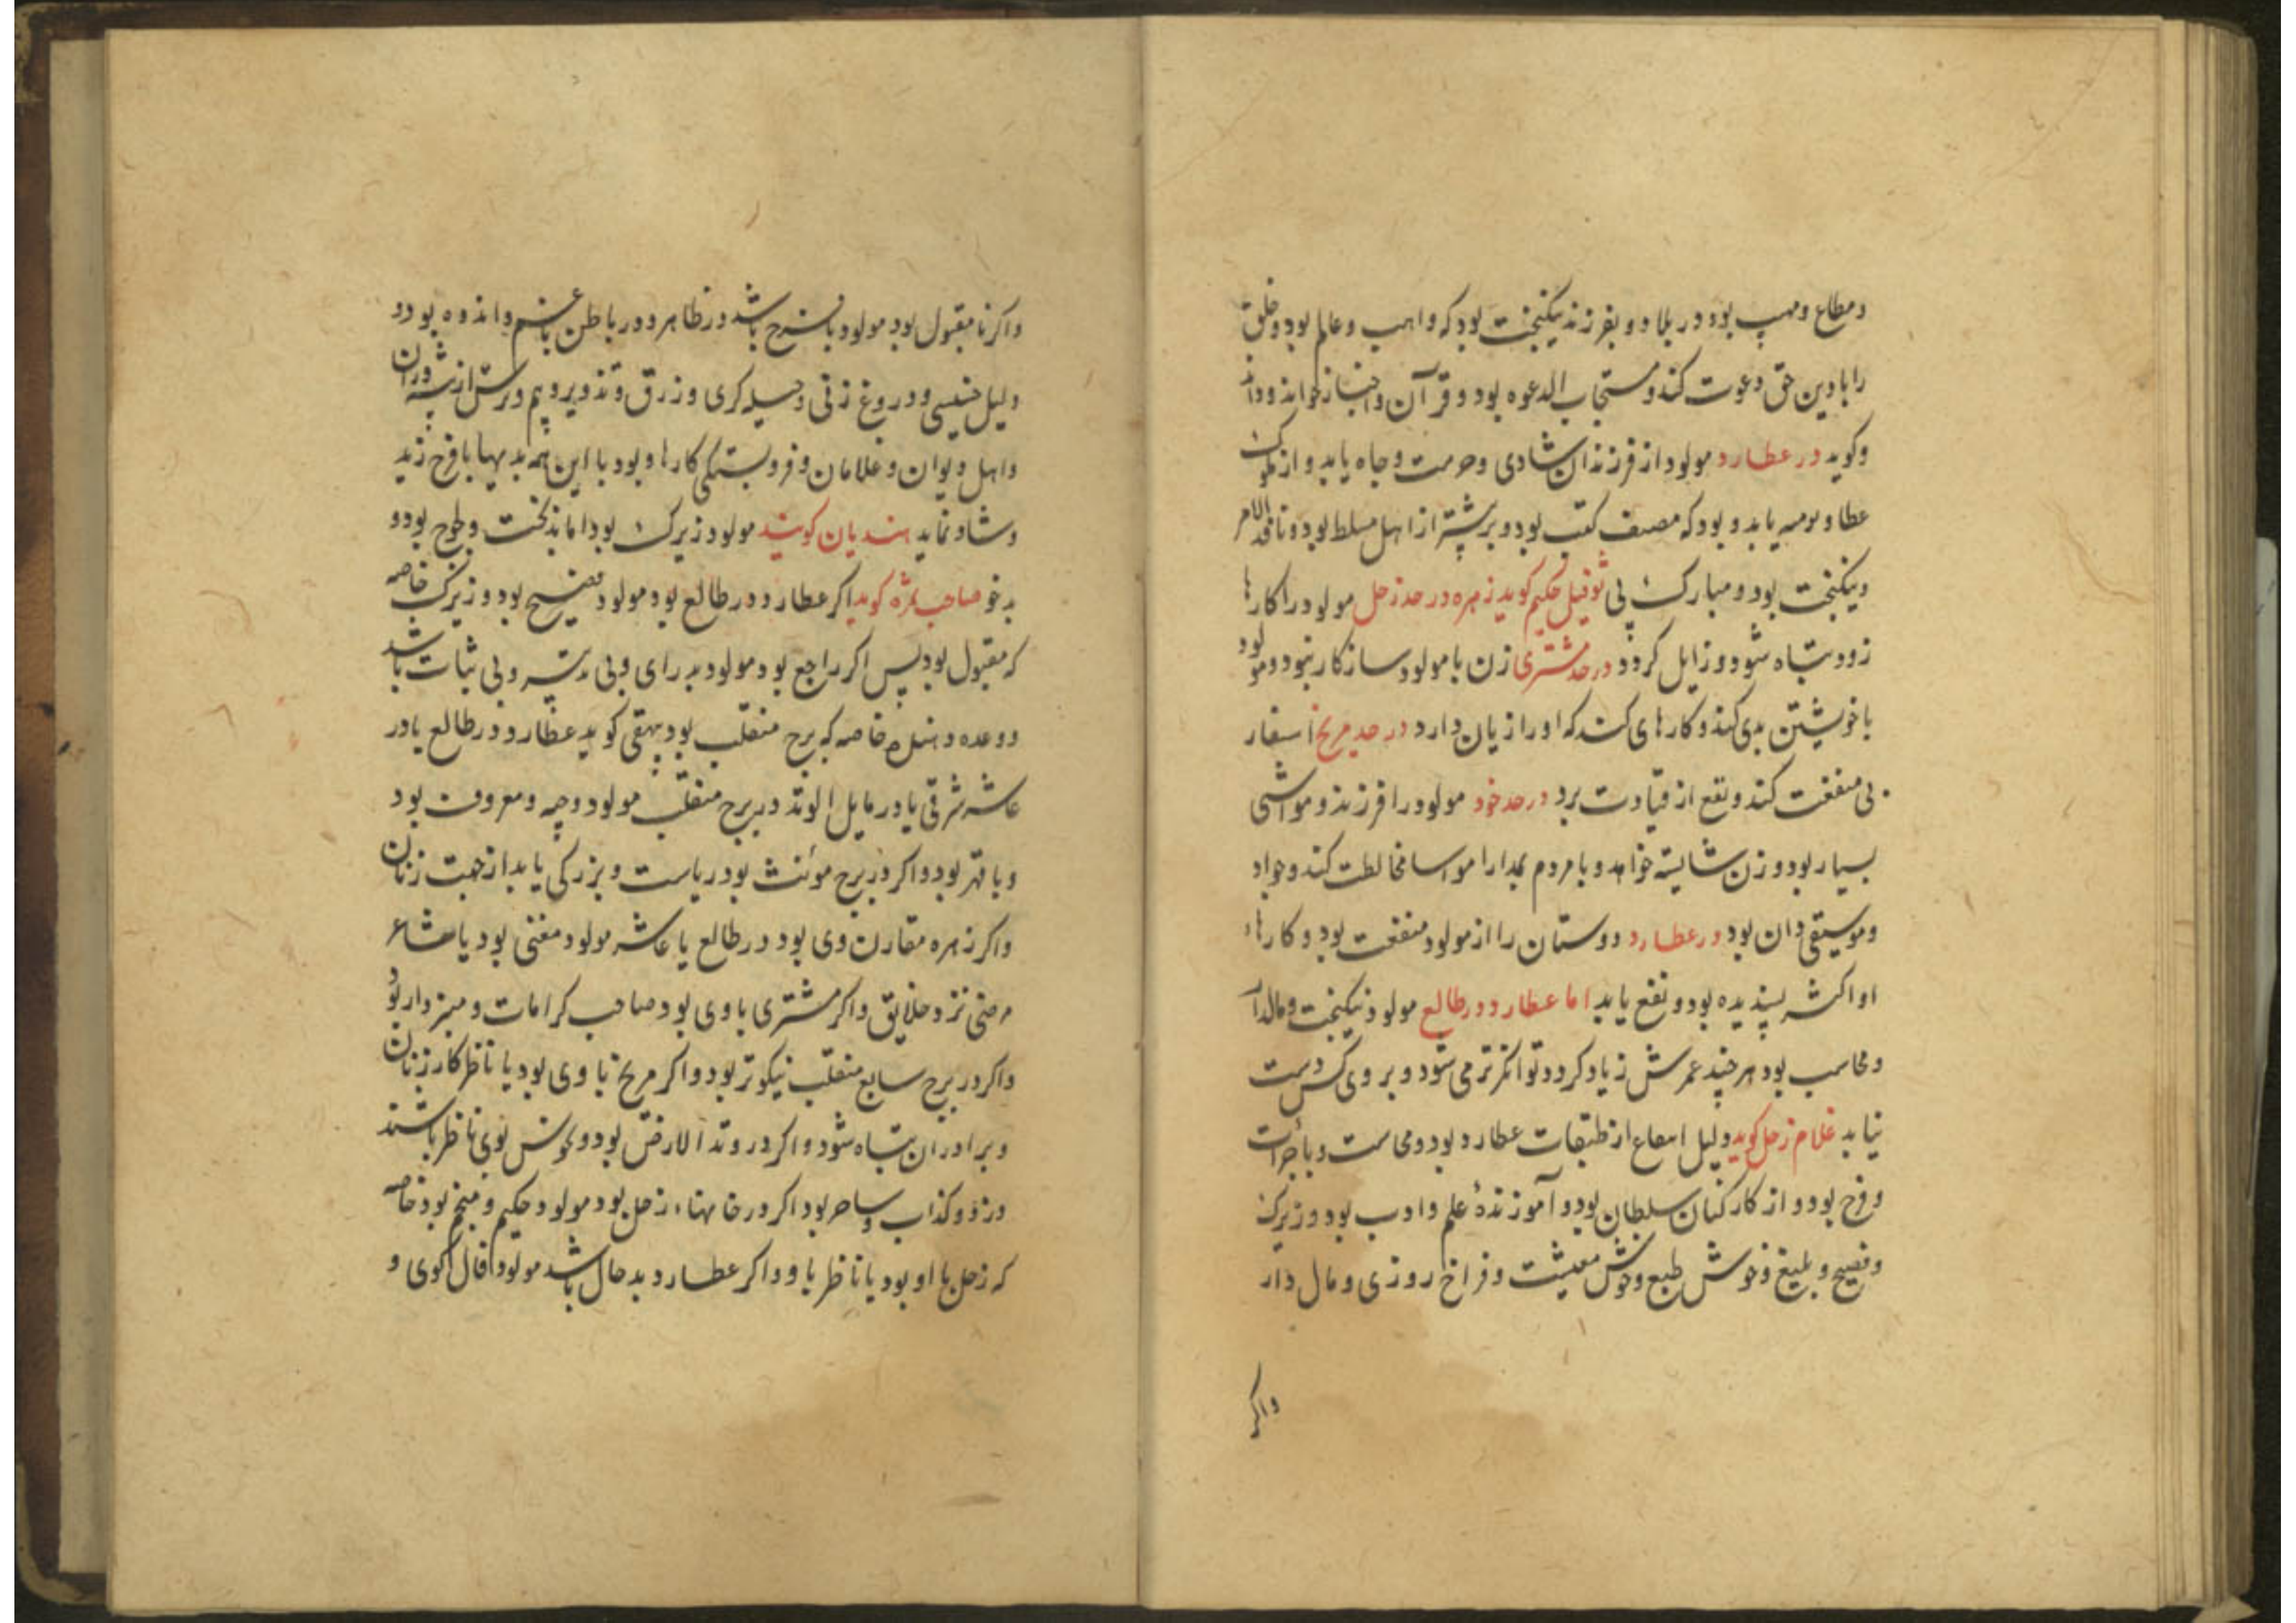 ومطاع ومهیب بود در بلاد و بفرزند نیکبخت بود که واهب و عالم بود و خلق
را با دین حق دعوت کند و مستجاب الدعوه بود و قرآن و اخبار خواند و داند
وکوید در عطارد مولود از فرزندان شادی و حرمت و جاه یابد و از ملوک
عطا و یومیه یابد و بود که مصنف کتب بود و برشتر از اهل مسلط بود و نافذ الامر
و نیکبخت بود و مبارک پی ثوفیل حکیم کوید زهره در حد زحل مولود را کارها
زود تباه شود و زایل کردد در حد مشتری زن با مولود سازکار نبود و مولود
با خویشتن بدی کند و کارهای کند که او را زیان دارد در حد مریخ اسفار
بی منفعت کند و نفع از قیادت برد در حد خود مولود را فرزند و مواشی
بسیار بود و زن شایسته خواهد و با مردم بمدارا مواسا مخالطت کند و جواد
و موسیقی دان بود در عطارد دوستان را از مولود منفعت بود و کارهاء
او اکثر پسندیده بود و نفع یابد اما عطارد در طالع مولود نیکبخت و مالدار
و محاسب بود هر چند عمرش زیاد کردد توانکرتر می شود و بر وی کس دست
نیابد غلام زحل کوید دلیل از طبقات عطارد بود و محاسب و با جرات
و فرح بود و از کارکنان سلطان بود و آموزندهٔ علم و ادب بود و زیرک
و فصیح و بلیغ و خوش طبع و خوش معیشت و فراخ روزی و مال دار
واکر
واکر نامقبول بود مولود با شرح باشد در ظاهر و در باطن با غم و اندوه بود و
دلیل خسیسی و دروغ زنی و حیله کری و زرق و تزویر و بیم و ترس از پیشه وران
و اهل دیوان و غلامان و فروبستکی کارها و بود با این همه بدیها با فرح زید
و شاد نماید هندیان کویند مولود زیرک بود اما بدبخت و لجوج بود و
بدخو صاحب ثمره کوید اکر عطارد در طالع بود مولود فصیح بود و زیرک خاصه
که مقبول بود پس اکر راجع بود مولود بد رای و بی تدبیر و بی ثبات باشد
و وعده خاصه که برج منقلب بود بیهقی کوید عطارد در طالع یا در
عاشر شرقی یا در مایل الوتد در برج منقلب مولود وجیه و معروف بود
و با قهر بود و اکر در برج مونث بود ریاست و بزرکی یابد از جهت زنان
و اکر زهره مقارن وی بود در طالع یا عاشر مولود مغنی بود یا شاعر
مرضی نزد خلایق و اکر مشتری با وی بود صاحب کرامات و مبرز وار بود
و اکر در برج سابع منقلب نیکوتر بود و اکر مریخ با وی بود یا ناظر کار زنان
و برادران تباه شود و اکر در وتد الارض بود و نحوس بوی ناظر باشند
دزد و کذاب و ساحر بود اکر در خانهاء زحل بود مولود حکیم و منجم بود خاصه
که زحل با او بود یا ناظر باو و اکر عطارد بد حال باشد مولود فال کوی و